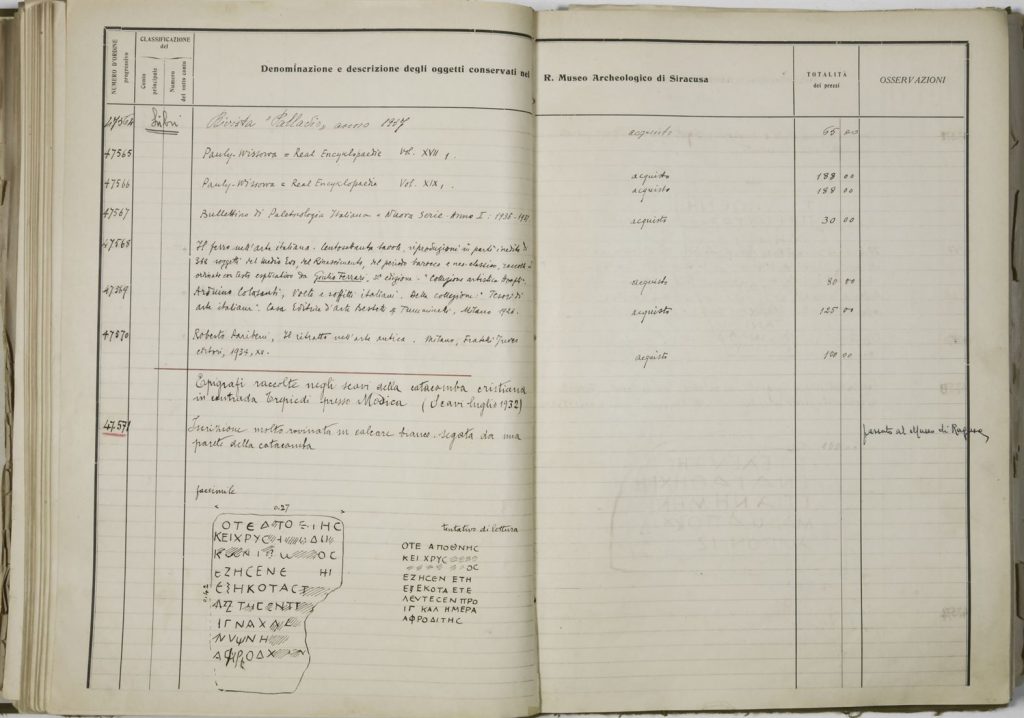 NUMERO D'ORDINE progressivo
CLASSIFICAZIONE del
Conto principale
Numero del sotto conto
Denominazione e descrizione degli oggetti conservati nel R. Museo Archeologico di Siracusa
TOTALITÀ dei prezzi
OSSERVAZIONI
47564 Libri Rivista "Palladio" anno 1937 acquisto 65 00
47565 Pauly-Wissowa = Real Encyklopaedie Vol. XVII, acquisto 188 00
47566 Pauly-Wissowa = Real Encyklopaedie Vol. XIX, acquisto 188 00
47567 Bullettino di Paletnologia Italiana = Nuova Serie Anno I: acquisto 30 00
47568 Il ferro nell'arte italiana. Centosettanta tavole, riproduzioni in parti inedite di
368 soggetti del Medio Evo, del Rinascimento, del periodo barocco e neo-classico, raccolti e
ordinate con testo esplicativo da Giulio Ferrari, 3ª edizione. "Collezione artistica acquisto 80 00
47569 Arduino Colasanti, Volte e soffitti italiani. Della collezione: "Tesori di
arte italiana". Casa Editrice d'arte Bestetti & Tumminelli, Milano 1926. acquisto 125 00
47570 Roberto Paribeni, Il ritratto nell'arte antica. Milano, Fratelli Treves
editori, 1934, XII. acquisto 100 00
Epigrafi raccolte negli scavi della catacomba cristiana
in contrada Trepiedi presso Modica (Scavi luglio 1932)
47571 Iscrizione molto rovinata su calcare bianco. segata da una passato al Museo di Ragusa
parete della catacomba
facsimile
0.27
0.42
ΟΤΕ ΑΠΟ ΞΙΗC
ΚΕΙΧΡΥC
ΟC
ΕΖΗCΕΝΕ ΗΙ
ΕΞΗΚΟΤΑCΞ
ΙΓΝΑΧΛΕ
ΝΥΨΝΗ
tentativo di lettura
ΟΤΕ ΑΠΟΘΝΗC
ΚΕΙ ΧΡΥC
ΟC
ΕΖΗCΕΝ ΕΤΗ
ΕΞΕΚΟΤΑ ΕΤΕ
ΛΕΥΤΕCΕΝ ΠΡΟ
ΙΓ ΚΑΛ ΗΜΕΡΑ
ΑΦΡΟΔΙΤΗC